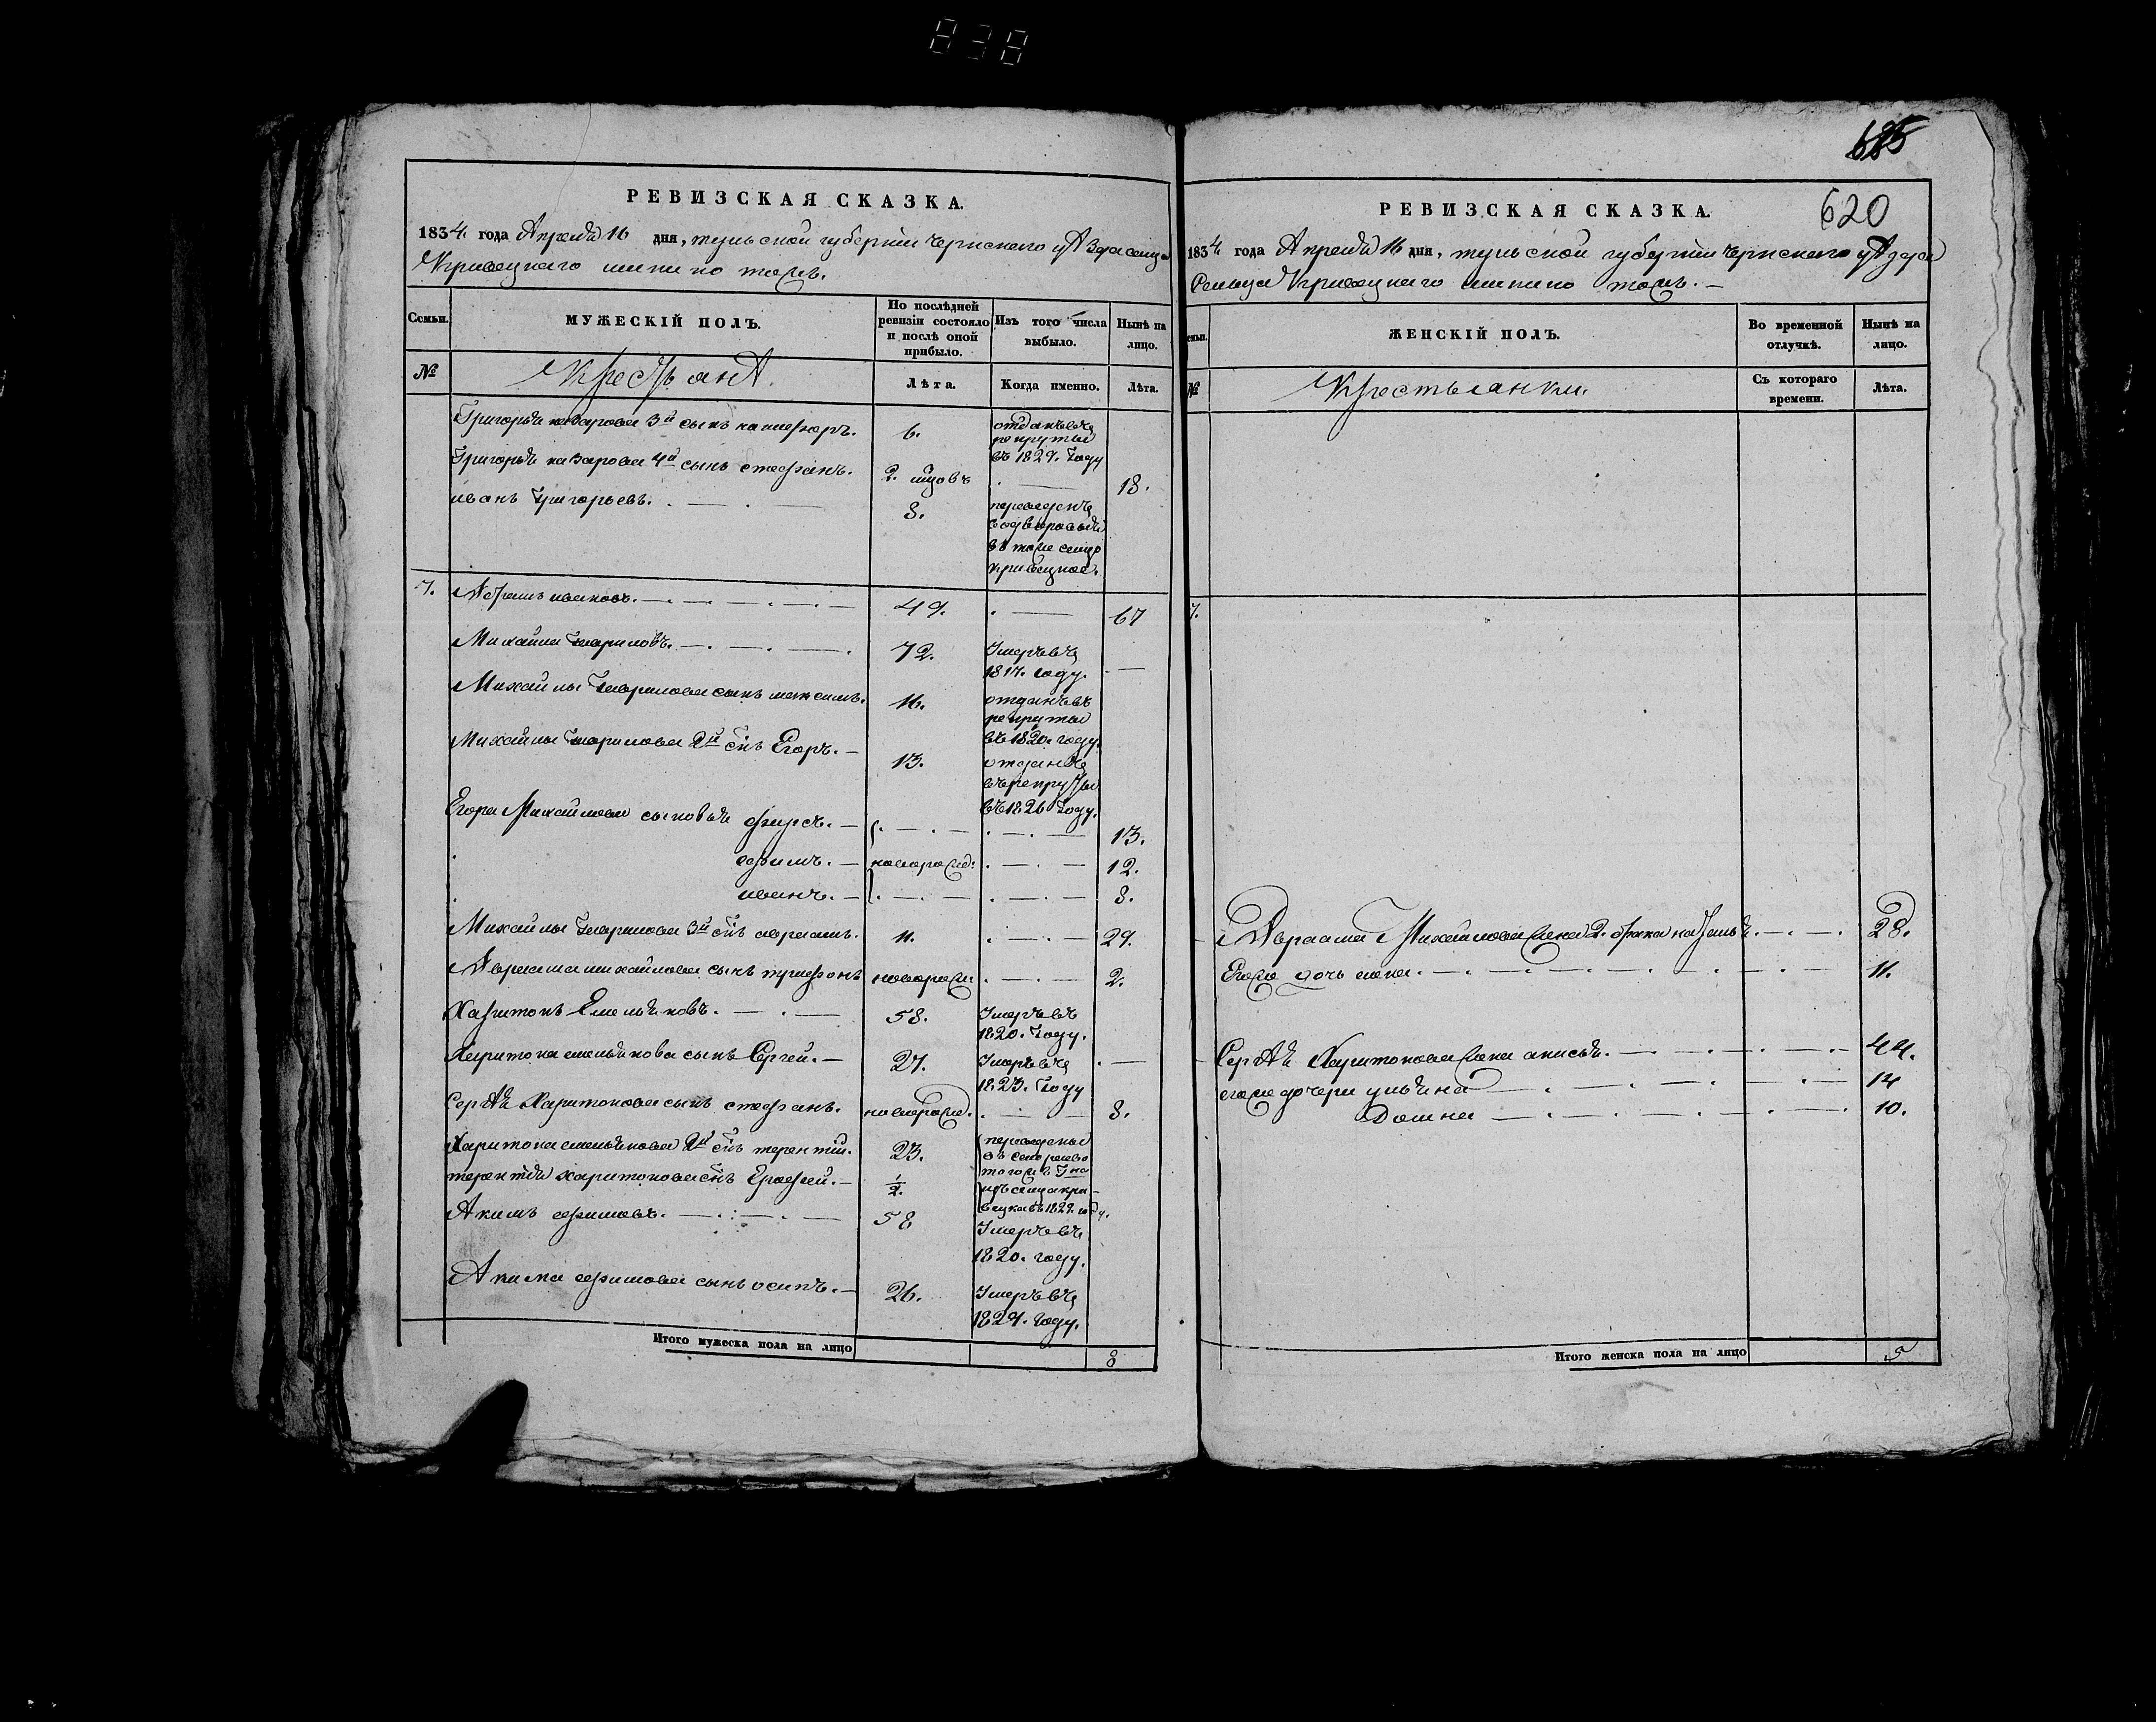 838
685
620
РЕВИЗСКАЯ СКАЗКА.
1834 года Апреля 16 дня, тульской губернїи чернскаго уѣзда сельца
Кривецкаго
Семьи.
МУЖЕСКІЙ ПОЛЪ.
По послѣдней ревизіи состояло и послѣ оной прибыло.
Изъ того числа выбыло.
Нынѣ на лицо.
№
Лѣта.
Когда именно.
Лѣта.
Григорья назарова 3й сынъ 6. отданъ въ рекруты въ 1829. году
Григорья назарова 4й сынъ стефанъ. 2. 18.
иванъ Григорьевъ. 8. переведенъ
7. ивановъ. 49. 67
Михайла Гавриловъ. 72. Умеръ въ 1817. году.
Михайлы Гаврилова сынъ максимъ. 16. отданъ въ рекруты въ 1820. году.
Михайлы Гаврилова 2й снъ Егоръ. 13. отданъ въ рекруты въ 1826 году.
Егора Михайлова сыновья фирсъ. 13.
ефимъ. новорожд: 12.
иванъ. 8.
Михайлы Гаврилова 3й снъ авраамъ. 11. 29.
Авраама михайлова сынъ трифонъ новорож: 2.
Харитонъ Емельяновъ. 58. Умеръ въ 1820. году.
Харитона емельянова сынъ Сергей. 27. Умеръ въ 1823. году
Сергѣя Харитонова сынъ стефанъ. новорож. 8.
Харитона емельянова 2й снъ терентїй. 23. переведены
терентїя харитонова снъ Ерофей. ½.
Акимъ ефимовъ. 58 Умеръ въ 1820. году.
Акима ефимова сынъ осипъ. 26. Умеръ въ 1829. году.
Итого мужеска пола на лицо 8
РЕВИЗСКАЯ СКАЗКА.
1834 года Апреля 16 дня, тульской губернїи чернскаго уѣзда
Сельца Кривецкаго
ЖЕНСКІЙ ПОЛЪ.
Во временной отлучкѣ.
Нынѣ на лицо.
№
Крестьянки.
Съ котораго времени.
Лѣта.
7.
Авраама Михайлова жена 2. брака 28.
Егоже дочь 11.
Сергѣя Харитонова жена анисья. 44.
егоже дочери ульяна 14
Домна 10.
Итого женска пола на лицо 5